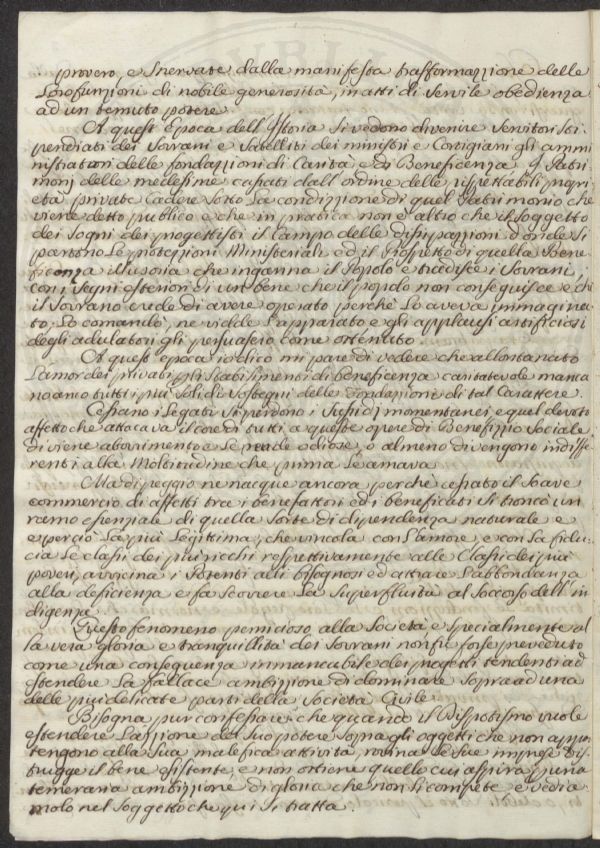 provero, e Snervate dalla manifesta trasformazzione delle
Profusioni di nobile generosità, in atti di Servile obedienza
ad un temuto potere.
A quest'Epoca dell'Istoria Si vedono divenire Servitori Sti
pendiati dei Sovrani e Satelliti dei ministri e Cortigiani gli ammi
nistratori delle fondazzioni di Carità e di Beneficenza. I Patri
monj delle medesime cassati dall'ordine delle rispettabili propri
età private Cadere Sotto La condizzione di quel Patrimonio che
viene detto publico e che in pratica non è altro che il Soggetto
dei Sogni dei progettisti il Campo delle dissipazzioni donde Si
partono Le protezzioni Ministeriali ed il Prospetto di quella Bene
ficenza illusoria che inganna il Popolo e tradisce i Sovrani,
con i Segni esteriori di un bene che il popolo non conseguisce e che
il Sovrano crede di avere operato perchè Lo aveva immagina
to; Lo comandò, ne vidde L'apparato e gli applausi artificiosi
degli adulatori gli persuasero come ottenuto.
A quest'epoca io dico mi pare di vedere che allontanato
L'amor dei privati gli Stabilimenti di beneficenza caritatevole manca
no a tutti i più validi Sostegni delle fondazzioni di tal Carattere.
Cessano i Legati Si perdono i Sussidj momentanei e quel devoto
affetto che attacava il core di tutti a queste opere di Benefizio Sociale
diviene aborrimento e Le rende odiose, o almeno divengono indiffe
renti alla Moltitudine che prima Le amava.
Ma di peggio ne nacque ancora perchè cessato il Soave
commercio di affetti tra i benefattori ed i beneficati Si troncò un
ramo essenziale di quella Sorte di dipendenza naturale e
e perciò La più Legittima, che vincola con L'amore, e con La fidu
cia Le classi dei più ricchi respettivamente alle Classi dei più
poveri, avvicina i Potenti alli bisognosi ed attrae L'abbondanza
alla deficienza e fa Scorrere La Superfluità al Soccorso dell'in
digenza.
Questo fenomeno pernicioso alla Società, e Specialmente al
la vera gloria e tranquillità dei Sovrani non fu forse preveduto
come una conseguenza immancabile dei progetti tendenti ad
estendere La fallace ambizzione di dominare Sopra ad una
delle più delicate parti della Società Civile.
Bisogna pur confessare che quando il Dispotismo vuole
estendere L'azzione del Suo potere Sopra gli oggetti che non appar
tengono alla Sua malefica attività, rovina Le Sue imprese dis
trugge il bene esistente, e non ottiene quello cui aspira per una
temeraria ambizzione di gloria che non Si compete, e vedia
molo nel Soggetto che qui Si tratta.